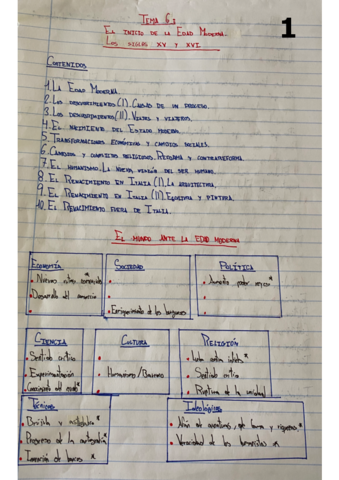 1
TEMA 6:
EL INICIO DE LA EDAD MODERNA.
LOS SIGLOS XV Y XVI.
CONTENIDOS
1. LA EDAD MODERNA
2. LOS DESCUBRIMIENTOS (I). CAUSAS DE UN PROCESO.
3. LOS DESCUBRIMIENTOS (II). VIAJES Y VIAJEROS.
4. EL NACIMIENTO DEL ESTADO MODERNO.
5. TRANSFORMACIONES ECONÓMICAS Y CAMBIOS SOCIALES.
6. CAMBIOS Y CONFLICTOS RELIGIOSOS. REFORMA Y CONTRARREFORMA
7. EL HUMANISMO. LA NUEVA VISIÓN DEL SER HUMANO.
8. EL RENACIMIENTO EN ITALIA (I). LA ARQUITECTURA.
9. EL RENACIMIENTO EN ITALIA (II). ESCULTURA Y PINTURA.
10. EL RENACIMIENTO FUERA DE ITALIA.
EL MUNDO ANTE LA EDAD MODERNA
ECONOMÍA
• Nuevas rutas *
• Desarrollo del comercio
•
SOCIEDAD
•
•
• Enriquecimiento de los burgueses
POLÍTICA
• Aumento poder *
•
•
CIENCIA
• Sentido crítico
• Experimentación
• *
CULTURA
•
• Humanismo/Barroco
•
RELIGIÓN
• Lucha contra *
• Sentido crítico
• Ruptura de la unidad
Técnicos
• Brújula y astrolabio *
• Progreso de la cartografía *
• Invención de barcos *
Ideológicos
• Afán de aventuras, de fama y riquezas. *
• Veracidad de las *